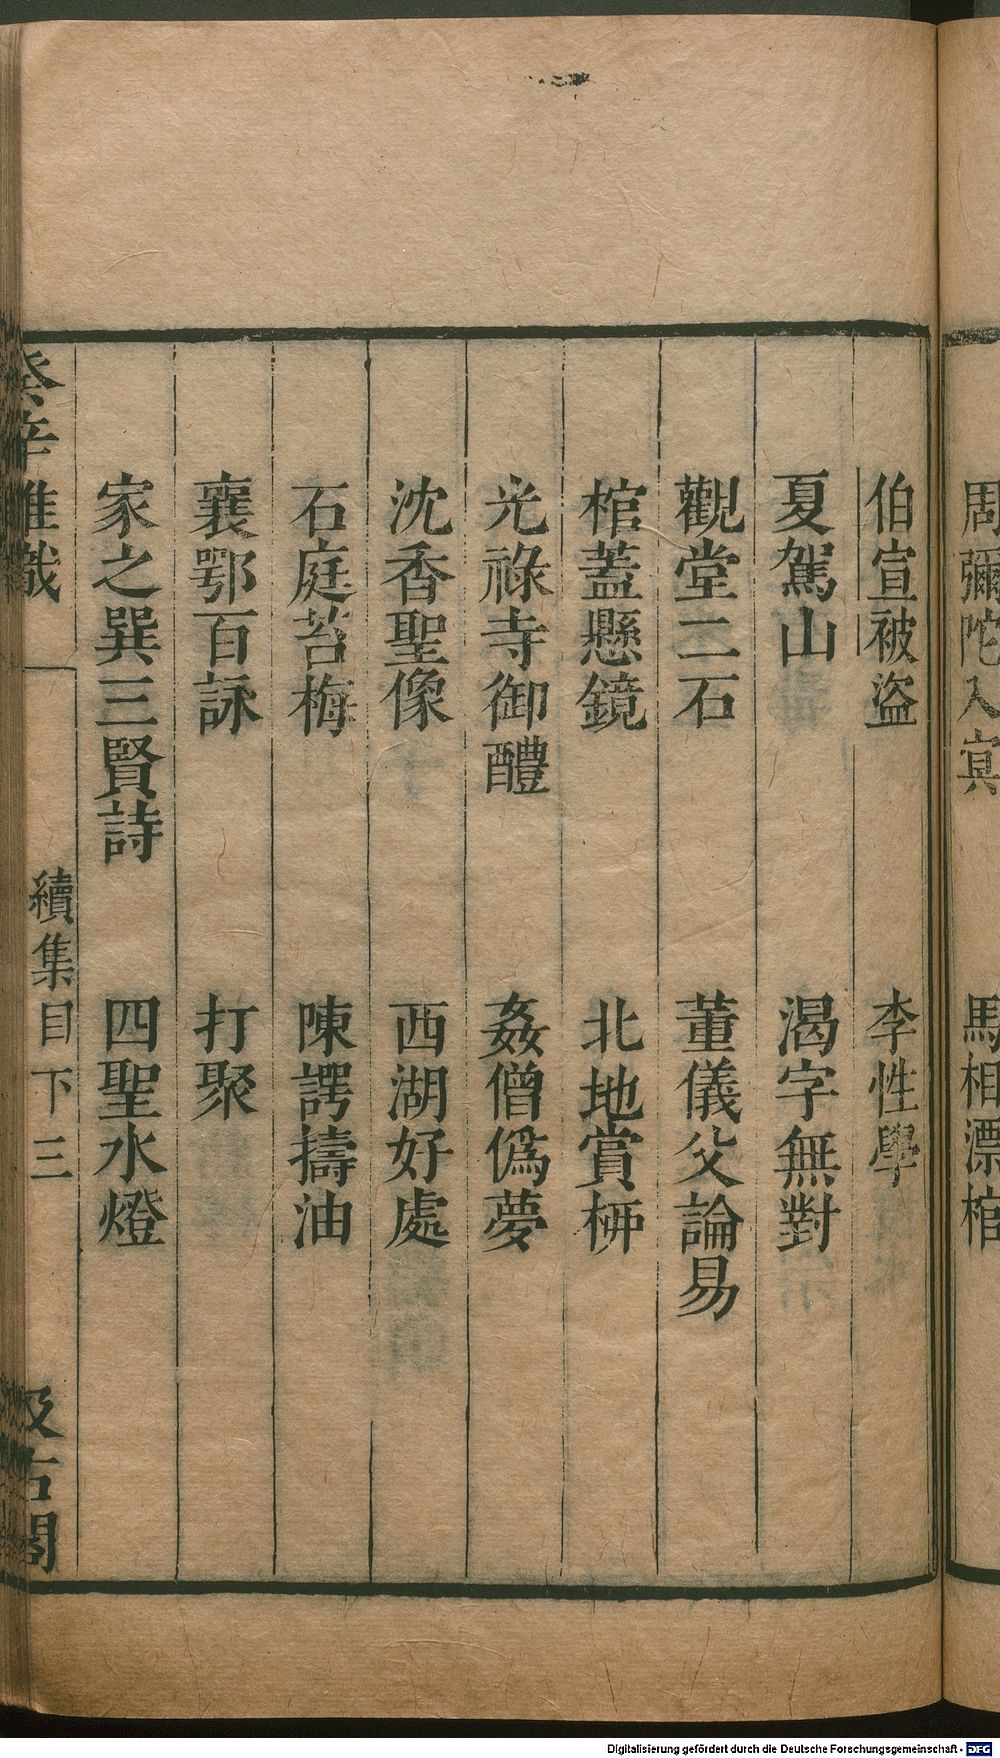 周彌陀入冥 馬相漂棺
伯宣被盜 李性學
夏駕山 渴字無對
觀堂二石 董儀父論易
棺蓋懸鏡 北地賞枬
光祿寺御醴 姦僧僞夢
沈香聖像 西湖好處
石庭苔梅 陳諤擣油
襄鄂百詠 打聚
家之巽三賢詩 四聖水燈
癸辛雜識 續集目下 三 汲古閣
Digitalisierung gefördert durch die Deutsche Forschungsgemeinschaft - DFG